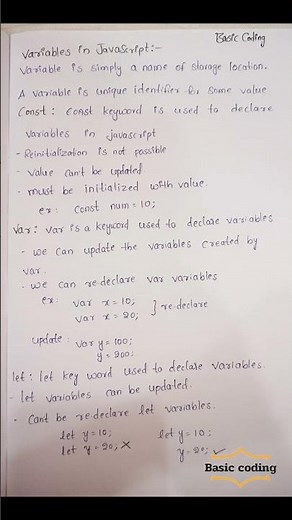 Basic Coding
Variables in JavaScript:-
Variable is simply a name of storage location.
A variable is unique identifier for some value
Const: const keyword is used to declare
variables in javascript
- Reinitialization is not possible
- value can't be updated.
- must be initialized with value.
ex: const num=10;
Var: var is a keyword used to declare variables
- we can update the variables created by
var.
- we can re-declare var variables
ex: var x=10;
var x=20; } re-declare
update: var y=100;
y=200;
let: let key word used to declare variables.
- let variables can be updated.
- cant be re-declare let variables.
let y=10; let y=10;
let y=20; ✗ y=20; ✓
Basic coding